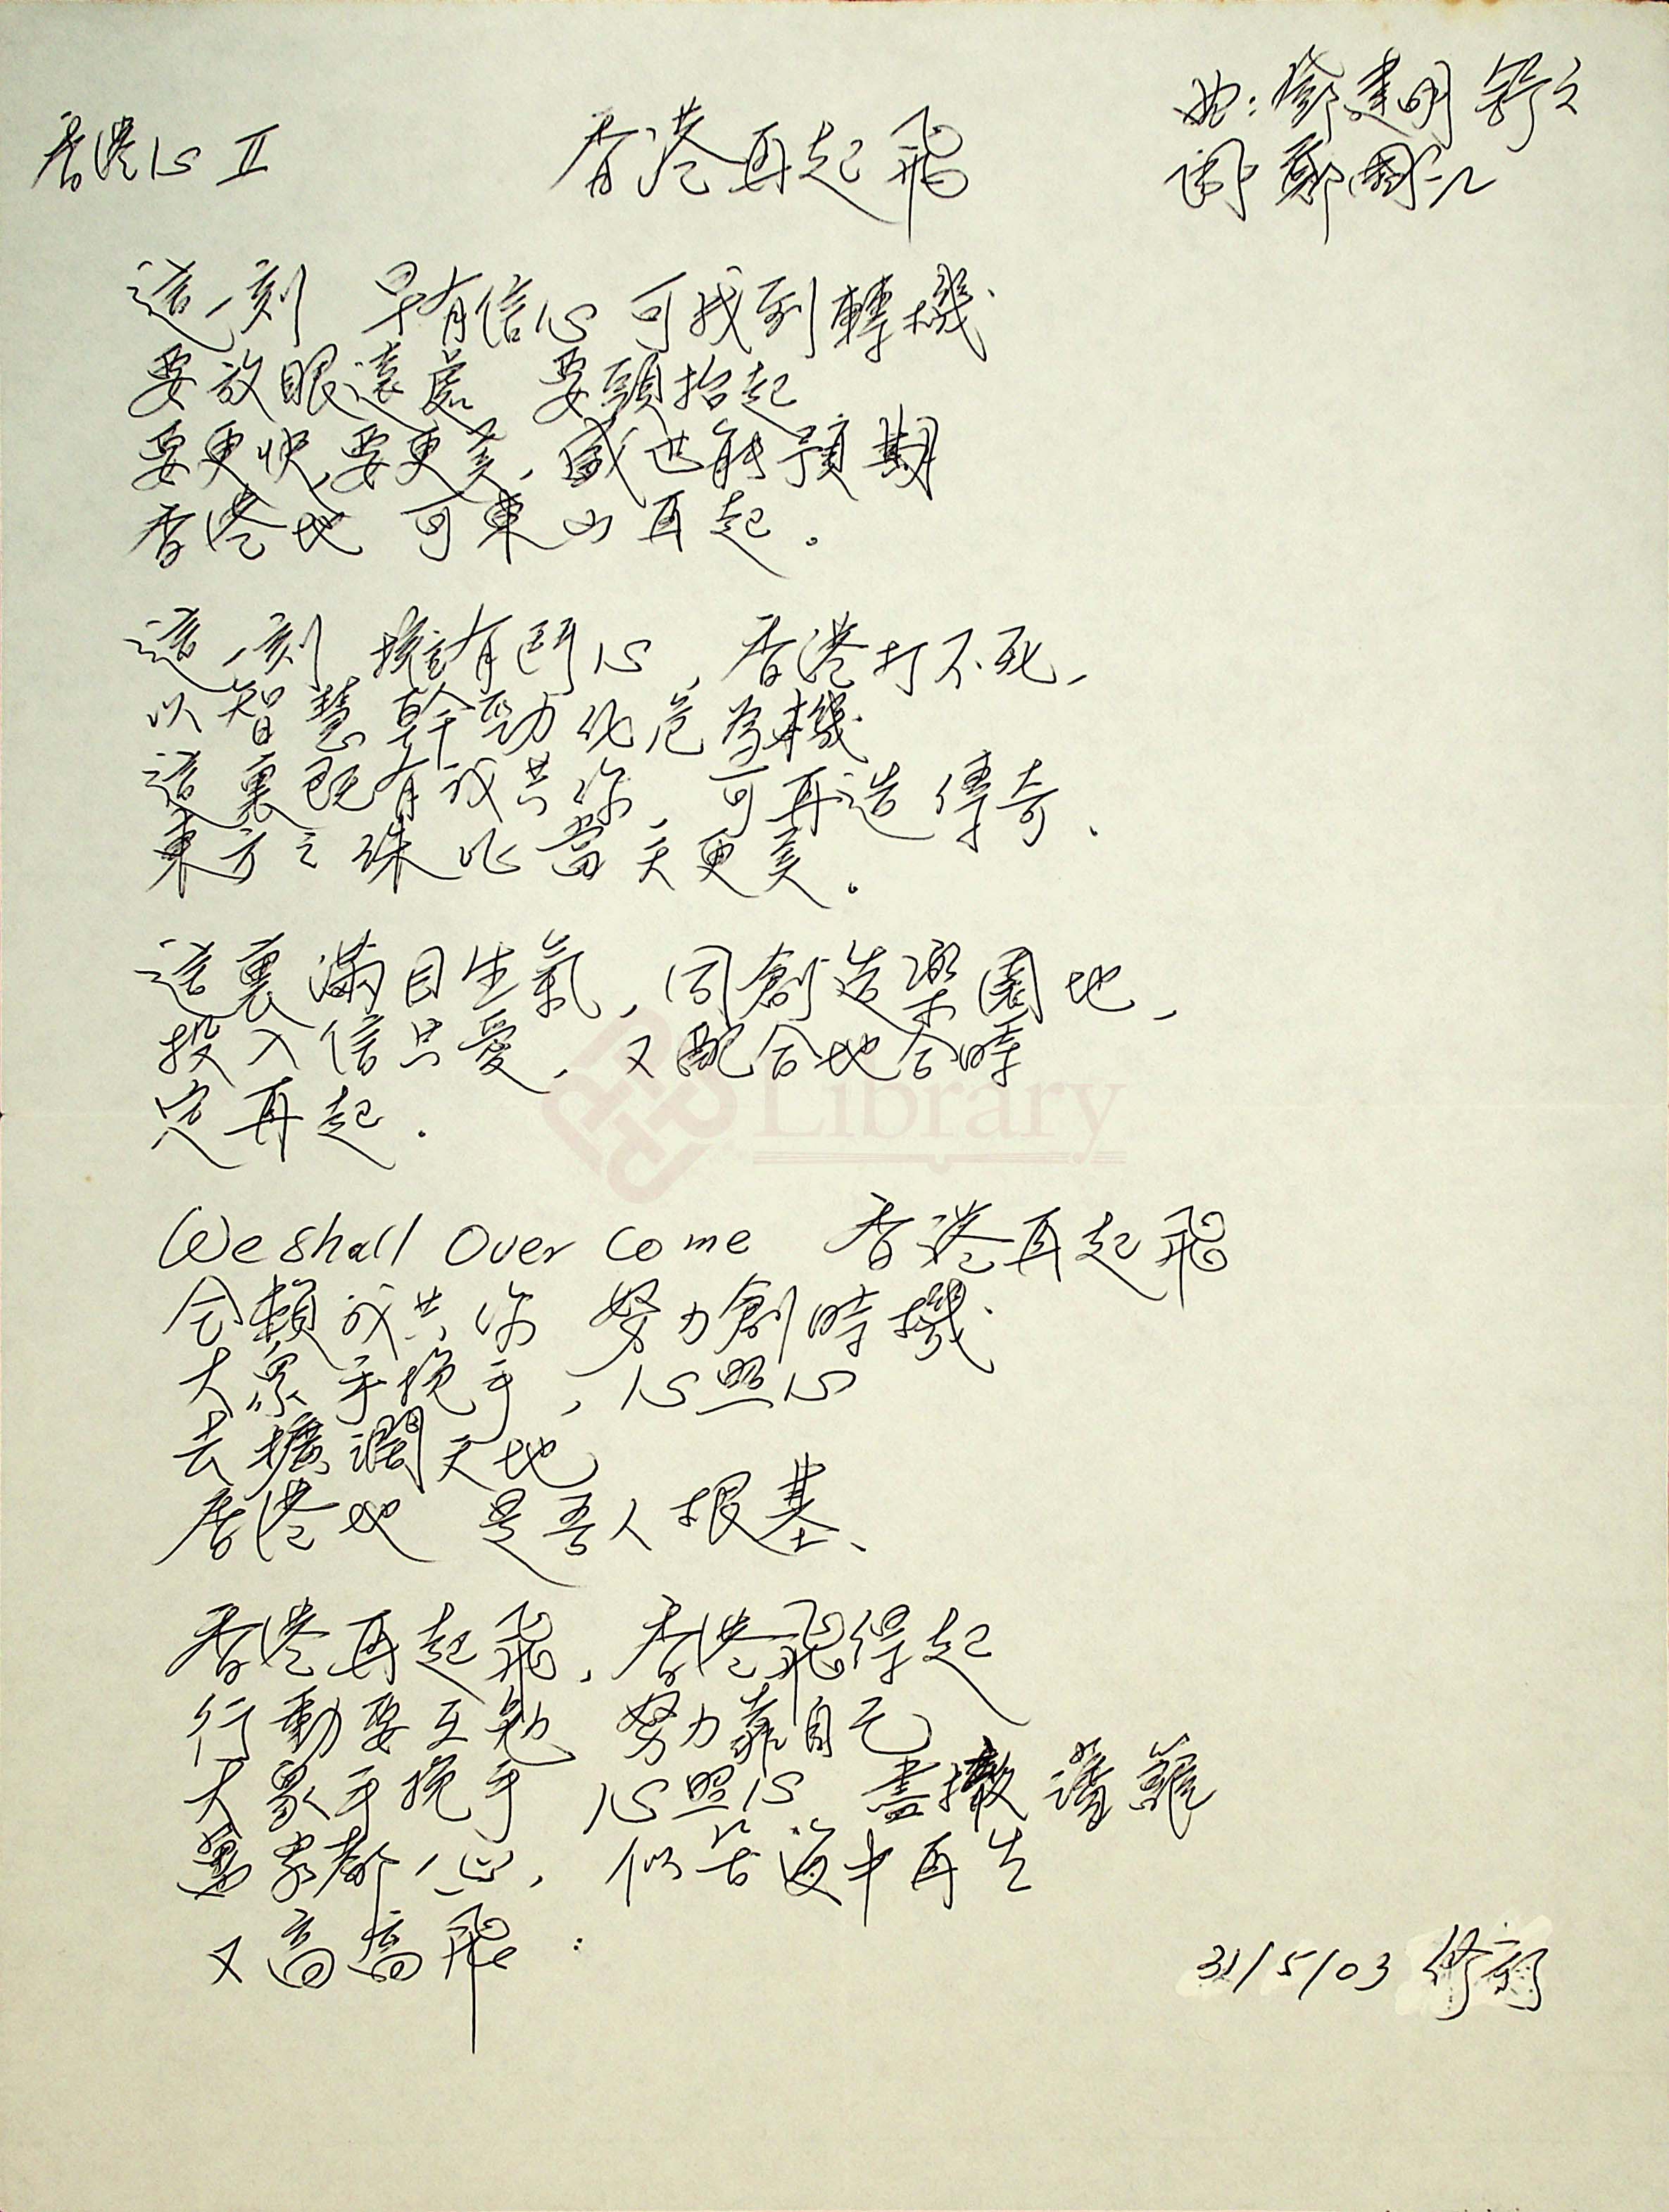 香港心 II
香港再起飛
曲：鄧建明 舒文
詞 鄭國江
這一刻 早有信心 可找到轉機
要放眼遠處 要頭抬起
要更快，要更美，盛世能預期
香港地 可東山再起。
這一刻 擁有鬥心，香港打不死，
以智慧幹勁化危為機
這裏既有我共你，可再造傳奇、
東方之珠比當天更美。
這裏滿目生氣，同創造樂園地，
投入信只愛，又配合地合時
定再起．
We shall Over Come 香港再起飛
全賴我共你 努力創時機
大眾手挽手，心照心
去擴濶天地
香港地 是吾人根基、
香港再起飛，香港飛得起
行動要互勉 努力靠自己
大眾手挽手 心照心 盡撤藩籬
萬眾都一心，似苦海中再生
又高高飛：
31/5/03 修訂
Library